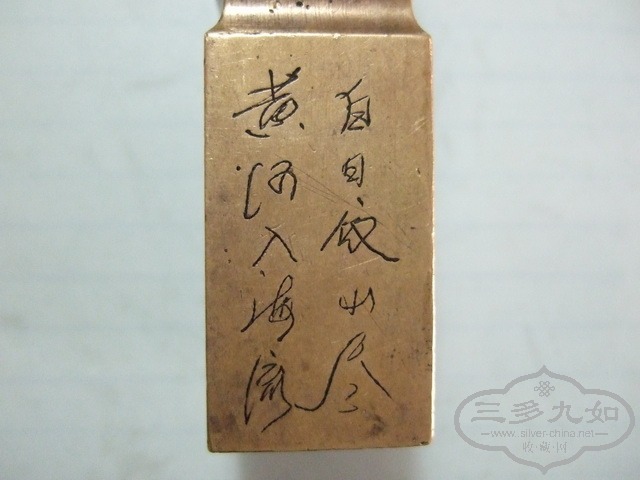 白日依山尽
黄河入海流
三多九如
www.silver-china.net
收·藏·网